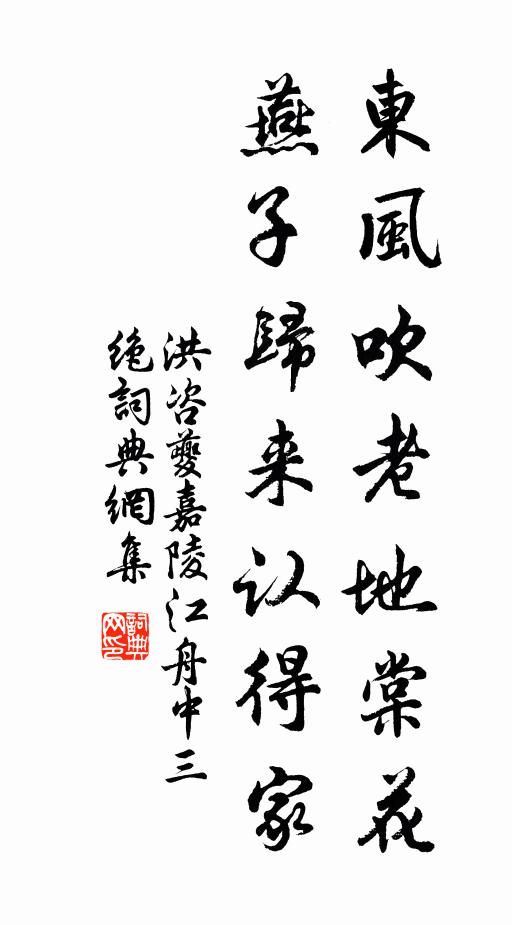 東風吹老地棠花
燕子歸来认得家
洪咨夔嘉陵江舟中三
绝詞典網集
詞典
网印